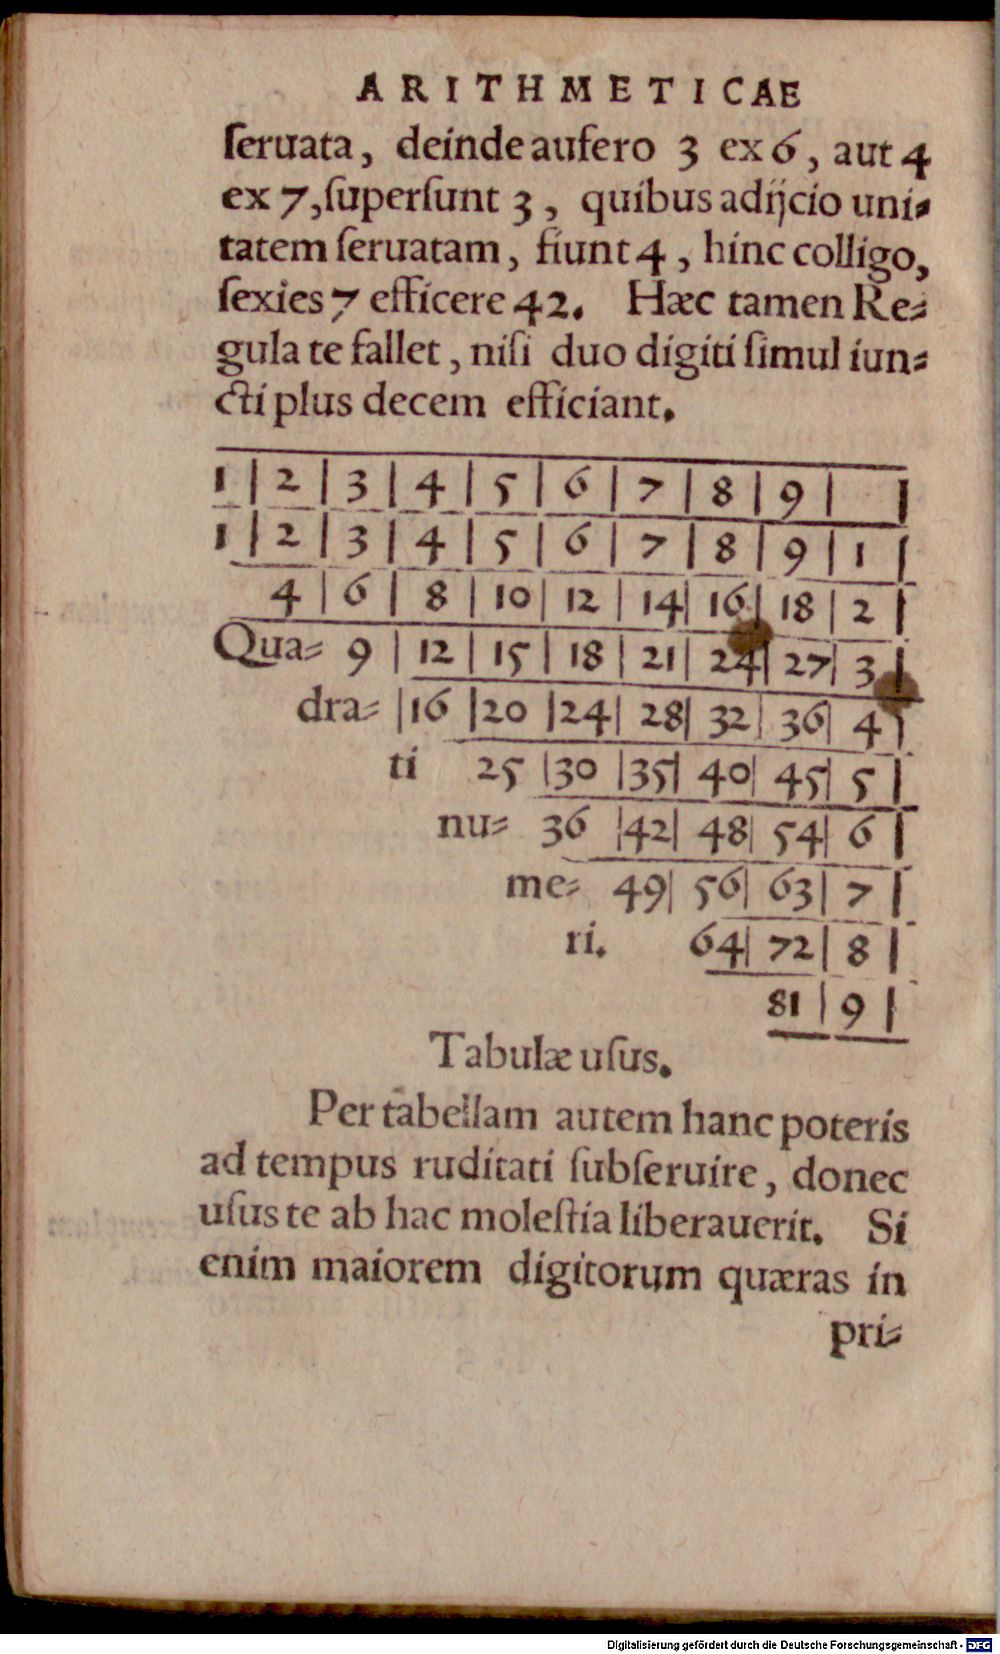 ARITHMETICAE
ſeruata, deinde aufero 3 ex 6, aut 4
ex 7, ſuperſunt 3, quibus adijcio uni⸗
tatem ſeruatam, fiunt 4, hinc colligo,
ſexies 7 efficere 42. Hæc tamen Re⸗
gula te fallet, niſi duo digiti ſimul iun⸗
cti plus decem efficiant.
1 | 2 | 3 | 4 | 5 | 6 | 7 | 8 | 9 | |
1 | 2 | 3 | 4 | 5 | 6 | 7 | 8 | 9 | 1 |
4 | 6 | 8 | 10 | 12 | 14 | 16 | 18 | 2 |
Qua⸗ 9 | 12 | 15 | 18 | 21 | 24 | 27 | 3 |
dra⸗ | 16 | 20 | 24 | 28 | 32 | 36 | 4 |
ti 25 | 30 | 35 | 40 | 45 | 5 |
nu⸗ 36 | 42 | 48 | 54 | 6 |
me⸗ 49 | 56 | 63 | 7 |
ri. 64 | 72 | 8 |
81 | 9 |
Tabulæ uſus.
Per tabellam autem hanc poteris
ad tempus ruditati ſubſeruire, donec
uſus te ab hac moleſtia liberauerit. Si
enim maiorem digitorum quæras in
pri⸗
Digitalisierung gefördert durch die Deutsche Forschungsgemeinschaft - DFG